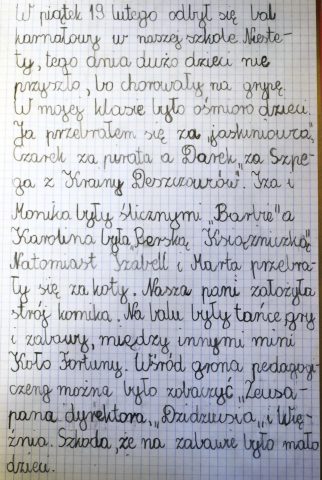 W piątek 19 lutego odbył się bal
karnałowy w naszej szkole Nieste-
ty, tego dnia dużo dzieci nie
przyszło, bo chorowały na grypę.
W mojej klasie było ośmioro dzieci.
Ja przebrałem się za „jaskiniowca”,
Czarek za pirata a Darek „za Szpe-
ga z Krainy Deszczowców”. Iza i
Monika były ślicznymi „Barbie” a
Karolina była „Perską Księżniczką”
Natomiast Izabell i Marta przebra-
ły się za koty. Nasza pani założyła
strój komika. Na balu były tańce gry
i zabawy, między innymi mini
Koło Fortuny. Wśród grona pedagogi-
czneg można było zobaczyć „Zeusa-
pana dyrektora, „Dzidziusia” i Wię-
źnia. Szkoda, że na zabawie było mało
dzieci.